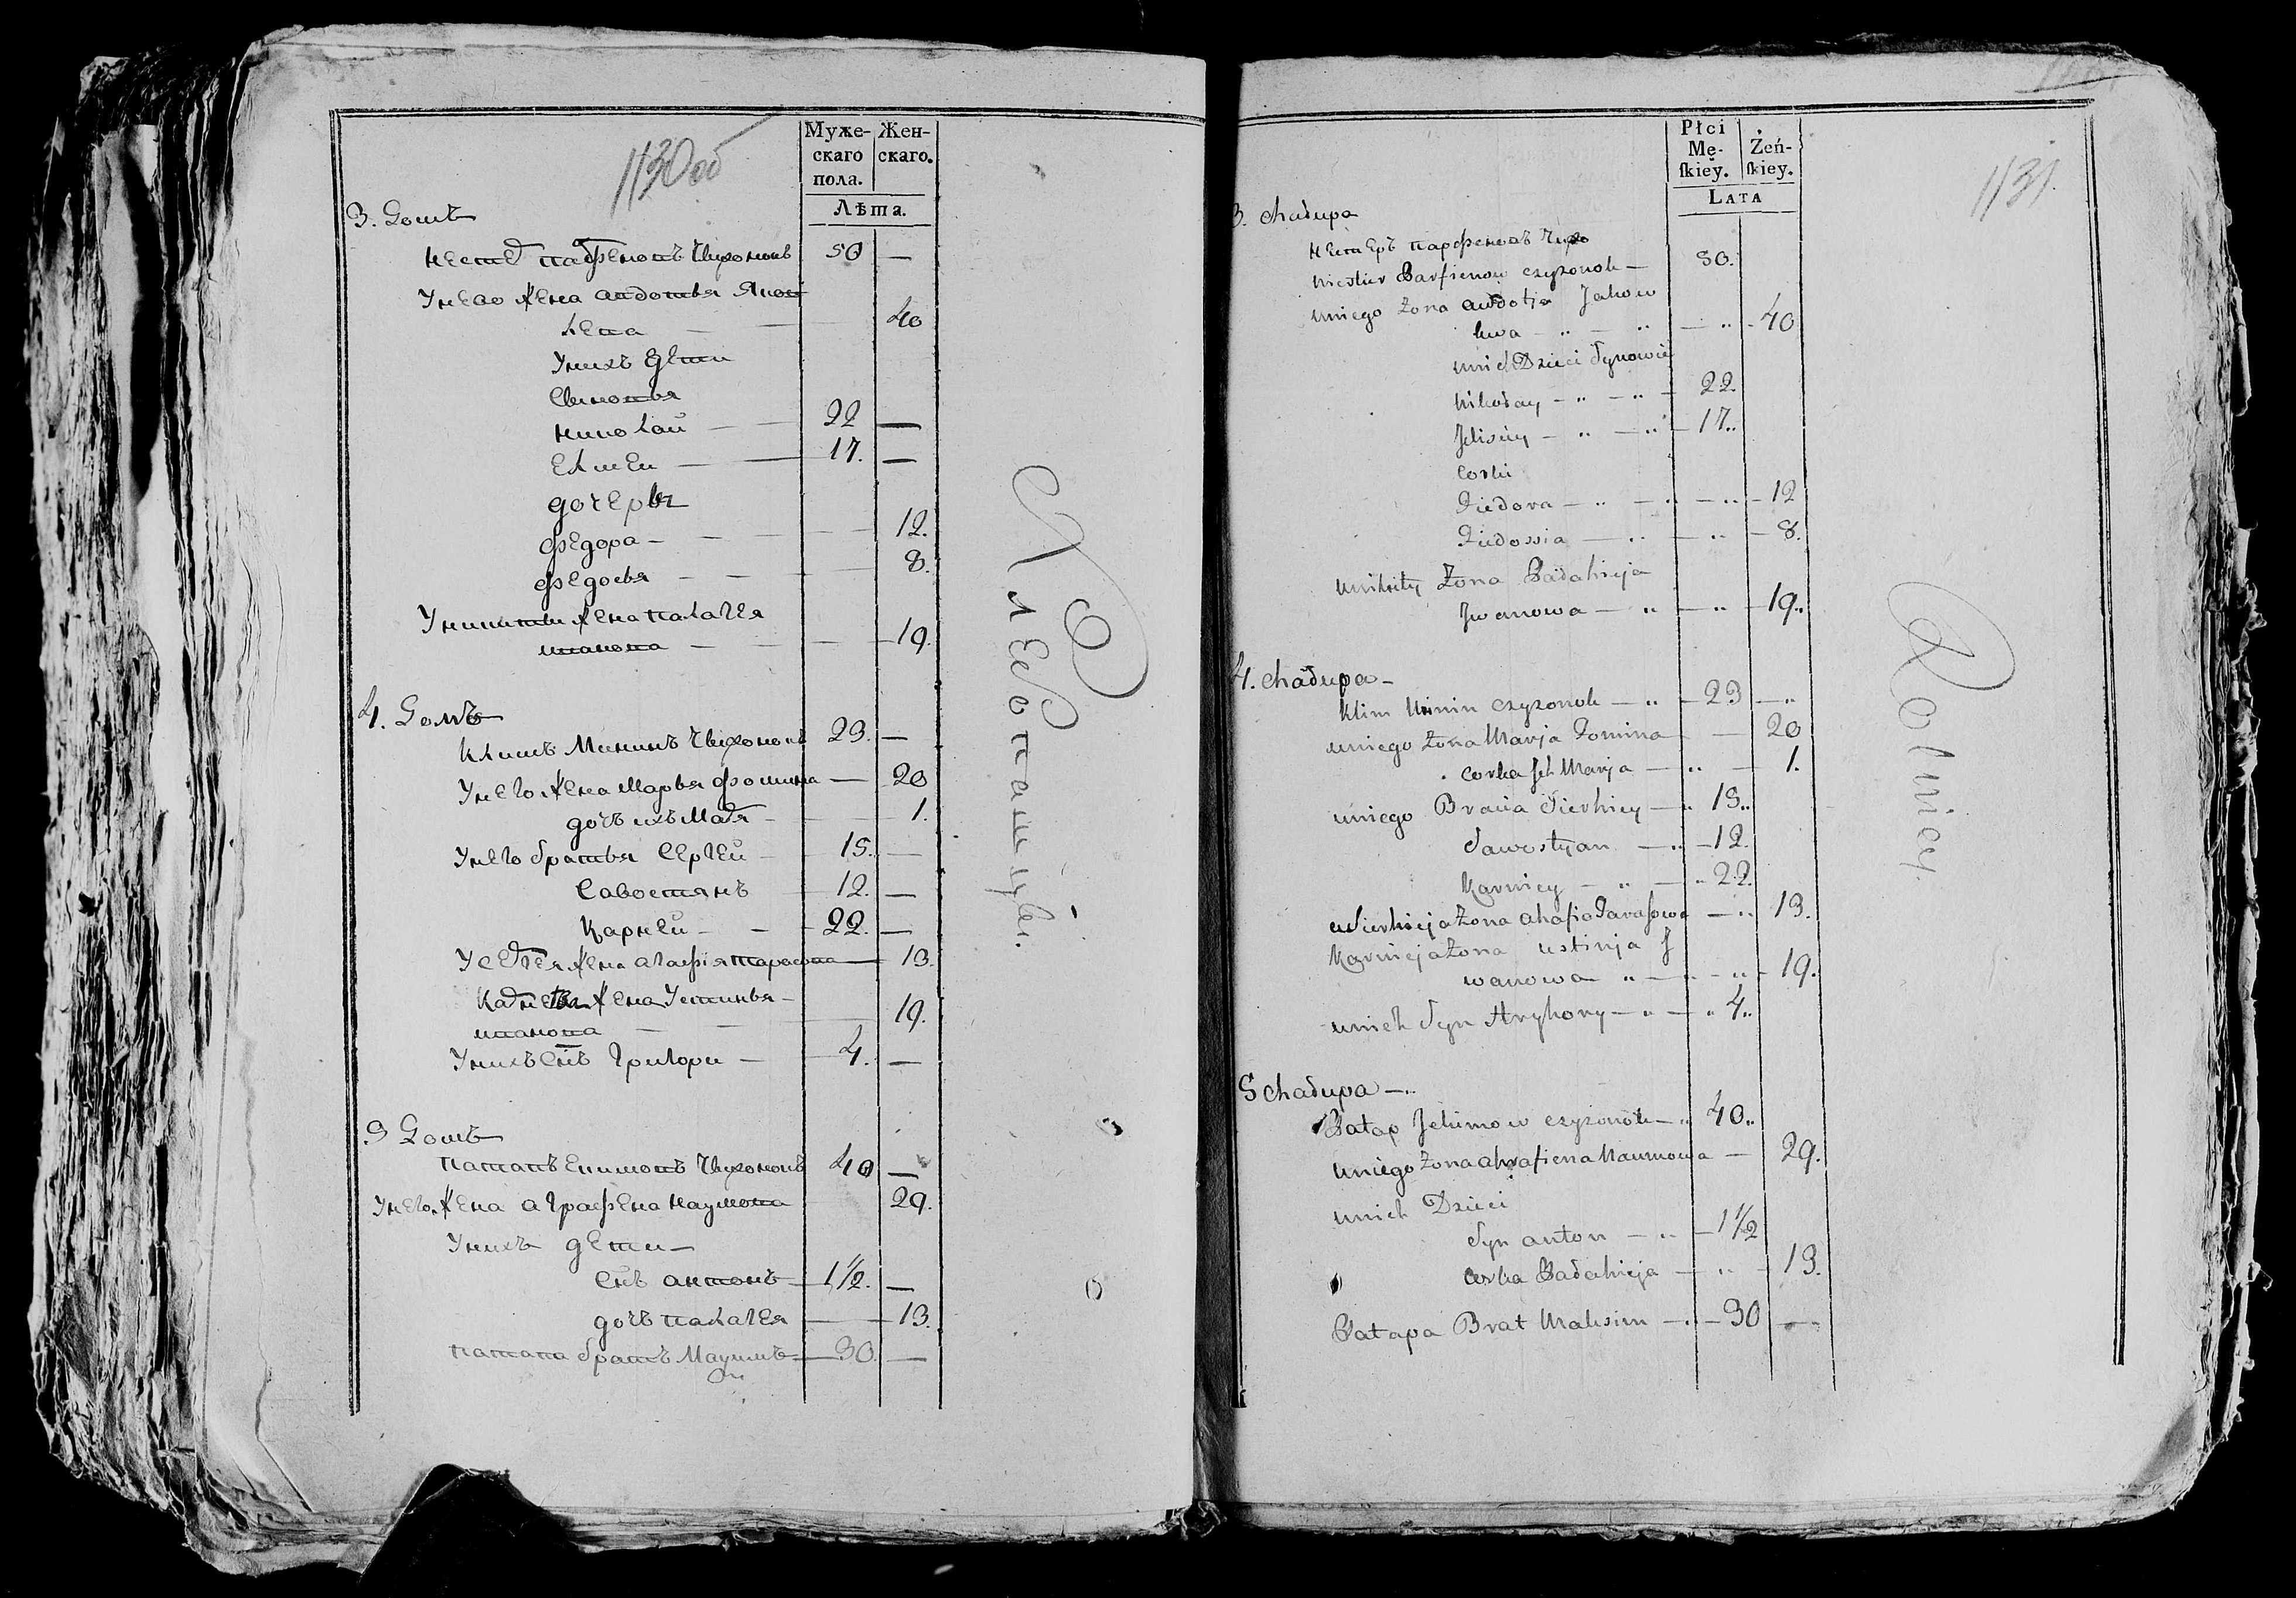 1130 об
Муже-
скаго
пола.
Жен-
скаго.
Лѣта.
3. Домъ
Нестер Парфеновъ Чижонокъ 50 —
У него жена Авдотья Яков
лева — — 40
У них дети
Сыновья
Николай — — 22 —
Елисеи — — 17. —
дочерья
Федора — — — — 12.
Федосья — — — 8.
У Никиты жена Палагея
Иванова — — — 19.
4. Домъ
Климъ Мининъ Чижонокъ 23. —
У него жена Марья Фомина — 20
дочь ихъ Маря — — 1.
У него братья Сергей — 15. —
Савостянъ — 12. —
Карней — — 22. —
У Сергея жена Агафiя Тарасова — 13.
Карнея жена Устинья —
Иванова — — — 19.
У нихъ снъ Григори — 4. —
5 Домъ
Патапъ Екимовъ Чижонокъ 40 —
У него жена Аграфена Наумова 29.
У нихъ дети —
Снъ Антонъ — 1 1/2. —
дочь Палагея — — 13.
Патапа братъ Ма — 30. —
Хлебопашцы.
Płci
Mę-
ſkiey.
Żeń-
ſkiey.
Lata
1131.
3. Chałupa
Нестеръ Парфеновъ Чижо
Niestier Parfienow Czyżonok — 50.
u niego Żona Awdotja Jakow
lewa — „ — „ — „ - 40
u nich Dzieci Synowie
Nikołay — „ — „ — 22.
Jelisiey — „ — „ — 17„
Corki
Fiedora — „ — „ — „ — 12
Fiedosia — „ — „ — 8.
u Nikity Żona Pałahieja
Jwanowa — „ — „ — 19„
4. Chałupa —
Klim Minin Czyżonok — „ — 23 — „
u niego Żona Marja Fomina — 20
Corka Jch Marja — „ — 1.
u niego Bracia Sierhiey — „ 15„
Sawostyan — „ — 12.
Karniey — „ — „ 22.
u Sierhieja Żona Ahafia Tarasowa — „ 13.
Karnieja Żona Ustinja J
wanowa „ — „ — „ - 19.
u nich Syn Hryhory — „ — „ 4„
5 Chałupa — „
Patap Jekimow Czyżonok — „ 40„
u niego Żona Ahrafiena Naumowa — 29.
u nich Dzieci
Syn Anton — „ — 1 1/2
Corka Pałahieja — „ — 13.
Patapa Brat Maksim — „ — 30 —
Rolnicy